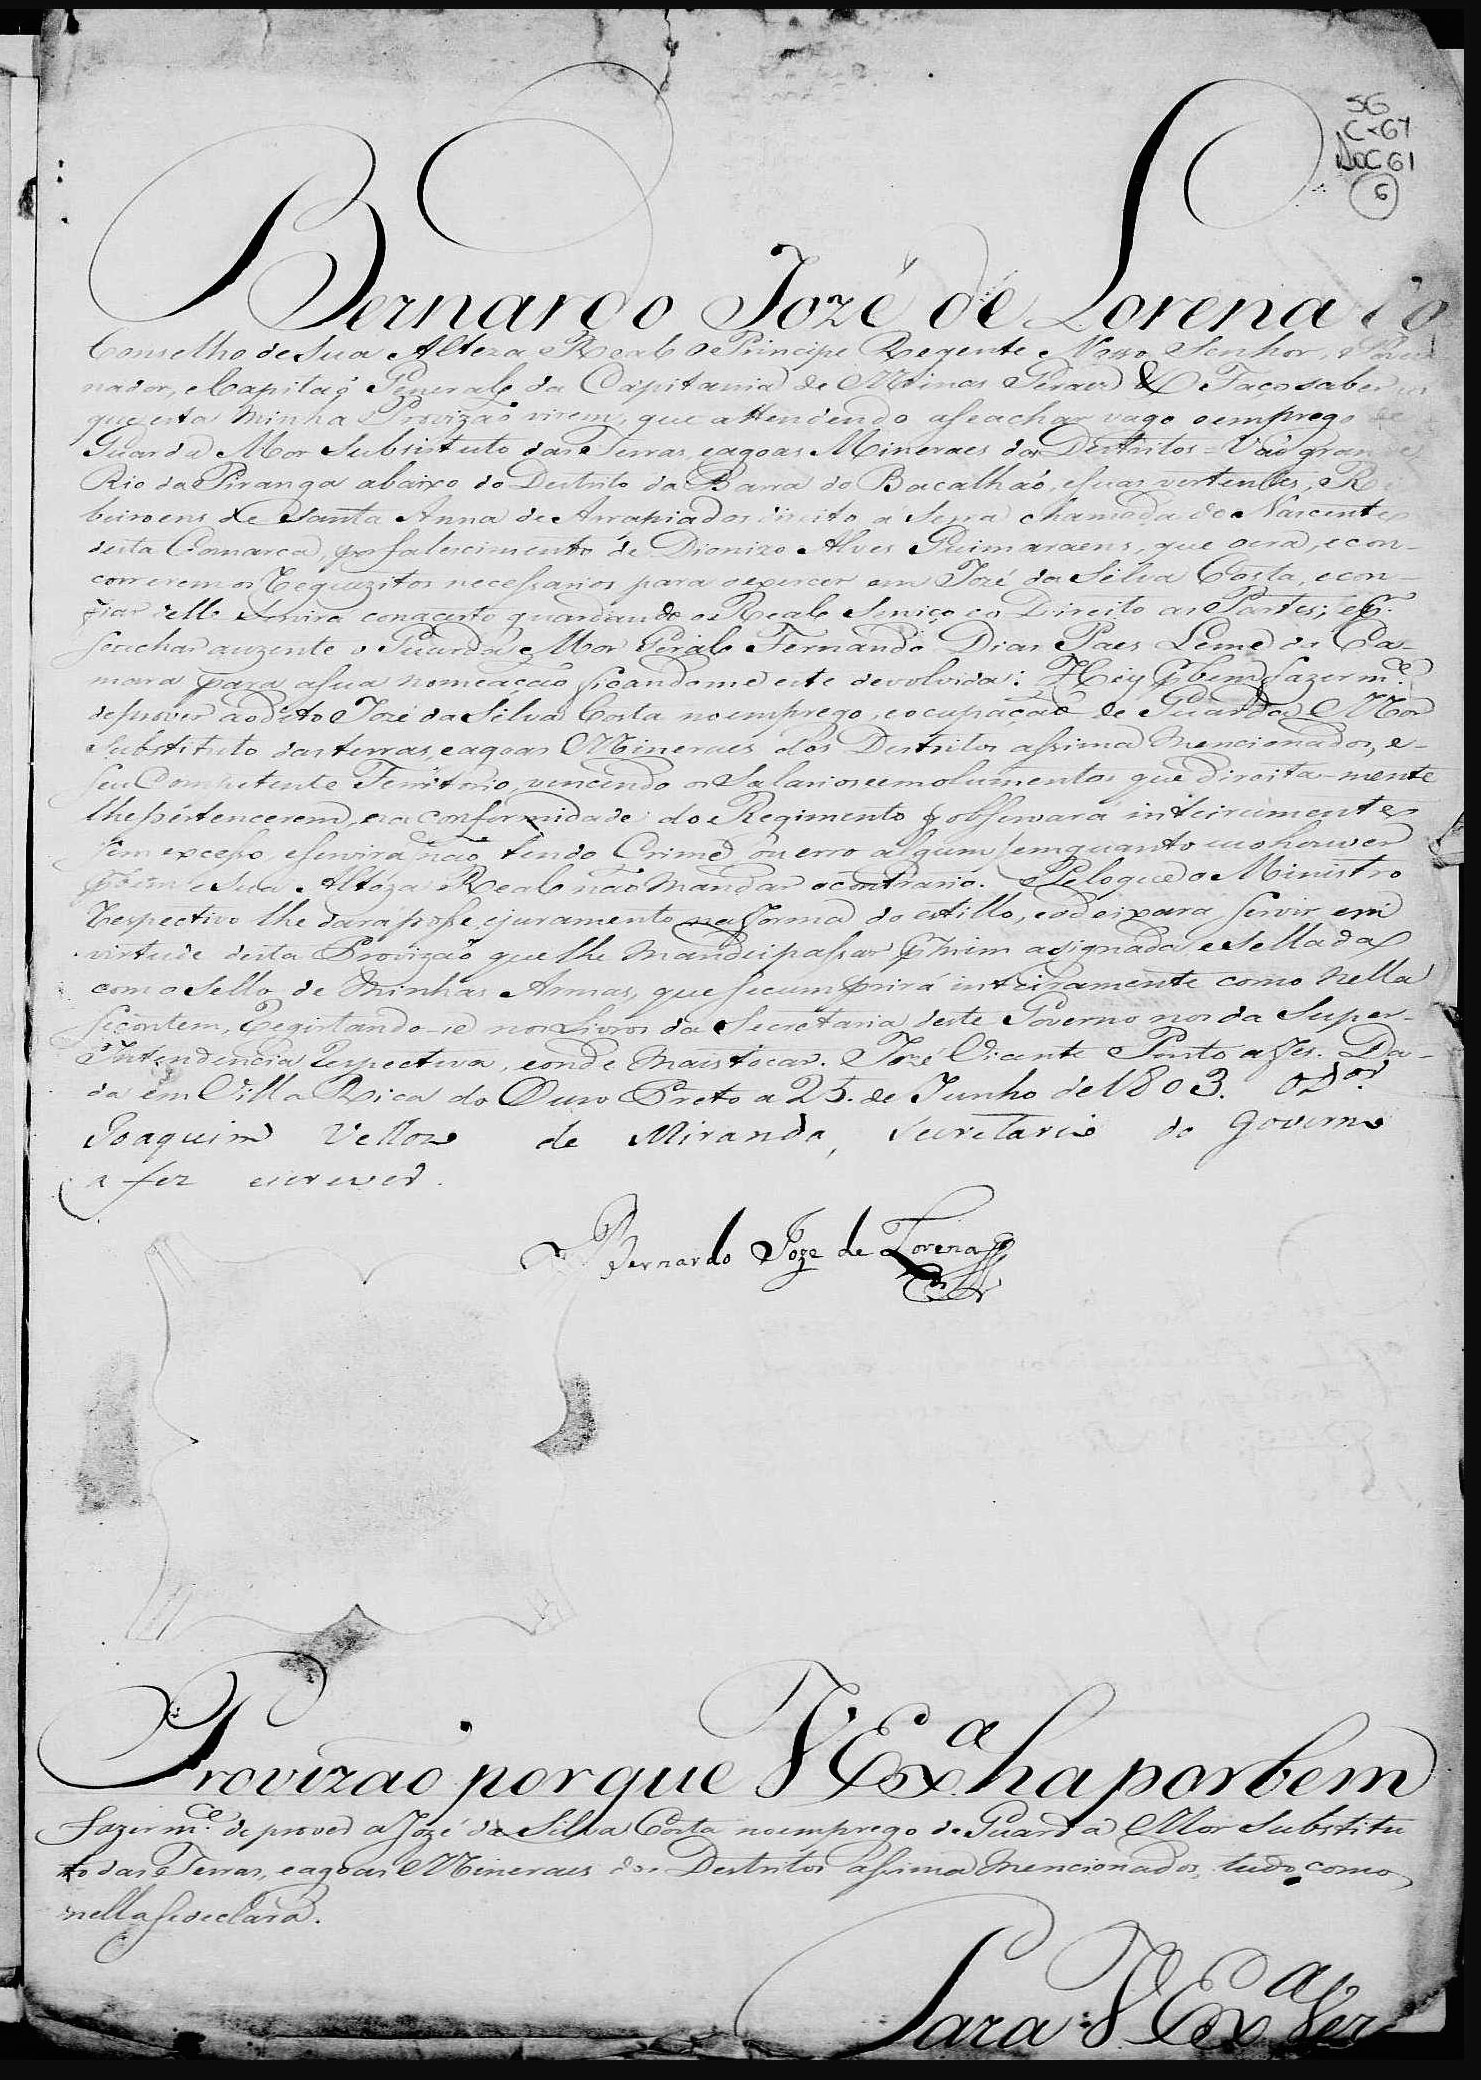 SG
Cx 61
DOC 61
6
Bernardo Jozé de Lorena do
Conselho de Sua Alteza Real o Principe Regente Nosso Senhor, Gover
nador, e Capitaõ General da Capitania de Minas Geraes &. Faço saber aos
que esta minha Provizaõ virem, que attendendo a se achar vago o emprego de
Guarda Mor Substituto das Terras, e agoas Mineraes dos Destritos = Vaú grande
Rio da Piranga abaixo do Destrito da Barra do Bacalháo, e suas vertentes, Ri
beiroens de Santa Anna de Arrapiados direito a Serra chamada do Nascente
desta Comarca, por falescimento de Dionizio Alves Guimaraens, que o era, e con-
correrem os Requezitos necessarios para o exercer em Jozé da Silva Costa, e con-
fiar delle servirá com acerto guardando o Real Serviço e o Direito as Partes; e por
se achar auzente o Guarda Mor Geral Fernando Dias Paes Leme da Ca-
mara para a sua nomeaçaõ ficandome este devolvida: Hey por bem fazer m.ce
de prover ao dito Jozé da Silva Costa no emprego, e ocupaçaõ de Guarda Mor
Substituto das terras, e agoas Mineraes dos Destritos assima mencionados, e-
seu Competente Territorio, vencendo os Salarios e emolumentos que direita-mente
lhe pertencerem, na conformidade do Regimento q observara inteiramente
sem excesso, e servirá naõ tendo Crime, ou erro algum, emquanto eu o houver
por bem e Sua Alteza Real naõ mandar o contrario. Pelo que o Ministro
Respectivo lhe dara posse, e juramento na forma do estillo, e o deixará servir em
virtude desta Provizaõ que lhe mandei passar por mim asignada, e sellada
com o Sello de minhas Armas, que se cumprirá inteiramente como nella
se contem, Registando-se nos Livros da Secretaria deste Governo nos da Super-
Intendencia Respectiva, e onde mais tocar. Jozé Vicente Pinto a fes. Da-
da em Villa Rica do Ouro Preto a 25. de Junho de 1803. O D.or
Joaquim Vellozo de Miranda, Secretario do Governo
a fez escrever.
Bernardo Joze de Lorena
Provizaõ por que V Ex.a ha por bem
fazer m.ce de prover a Jozé da Silva Costa no emprego de Guarda Mór Substitu
to das Terras, e agoas Mineraes dos Destritos assima mencionados, tudo como
nella se declara.
Para V Ex.a Ver